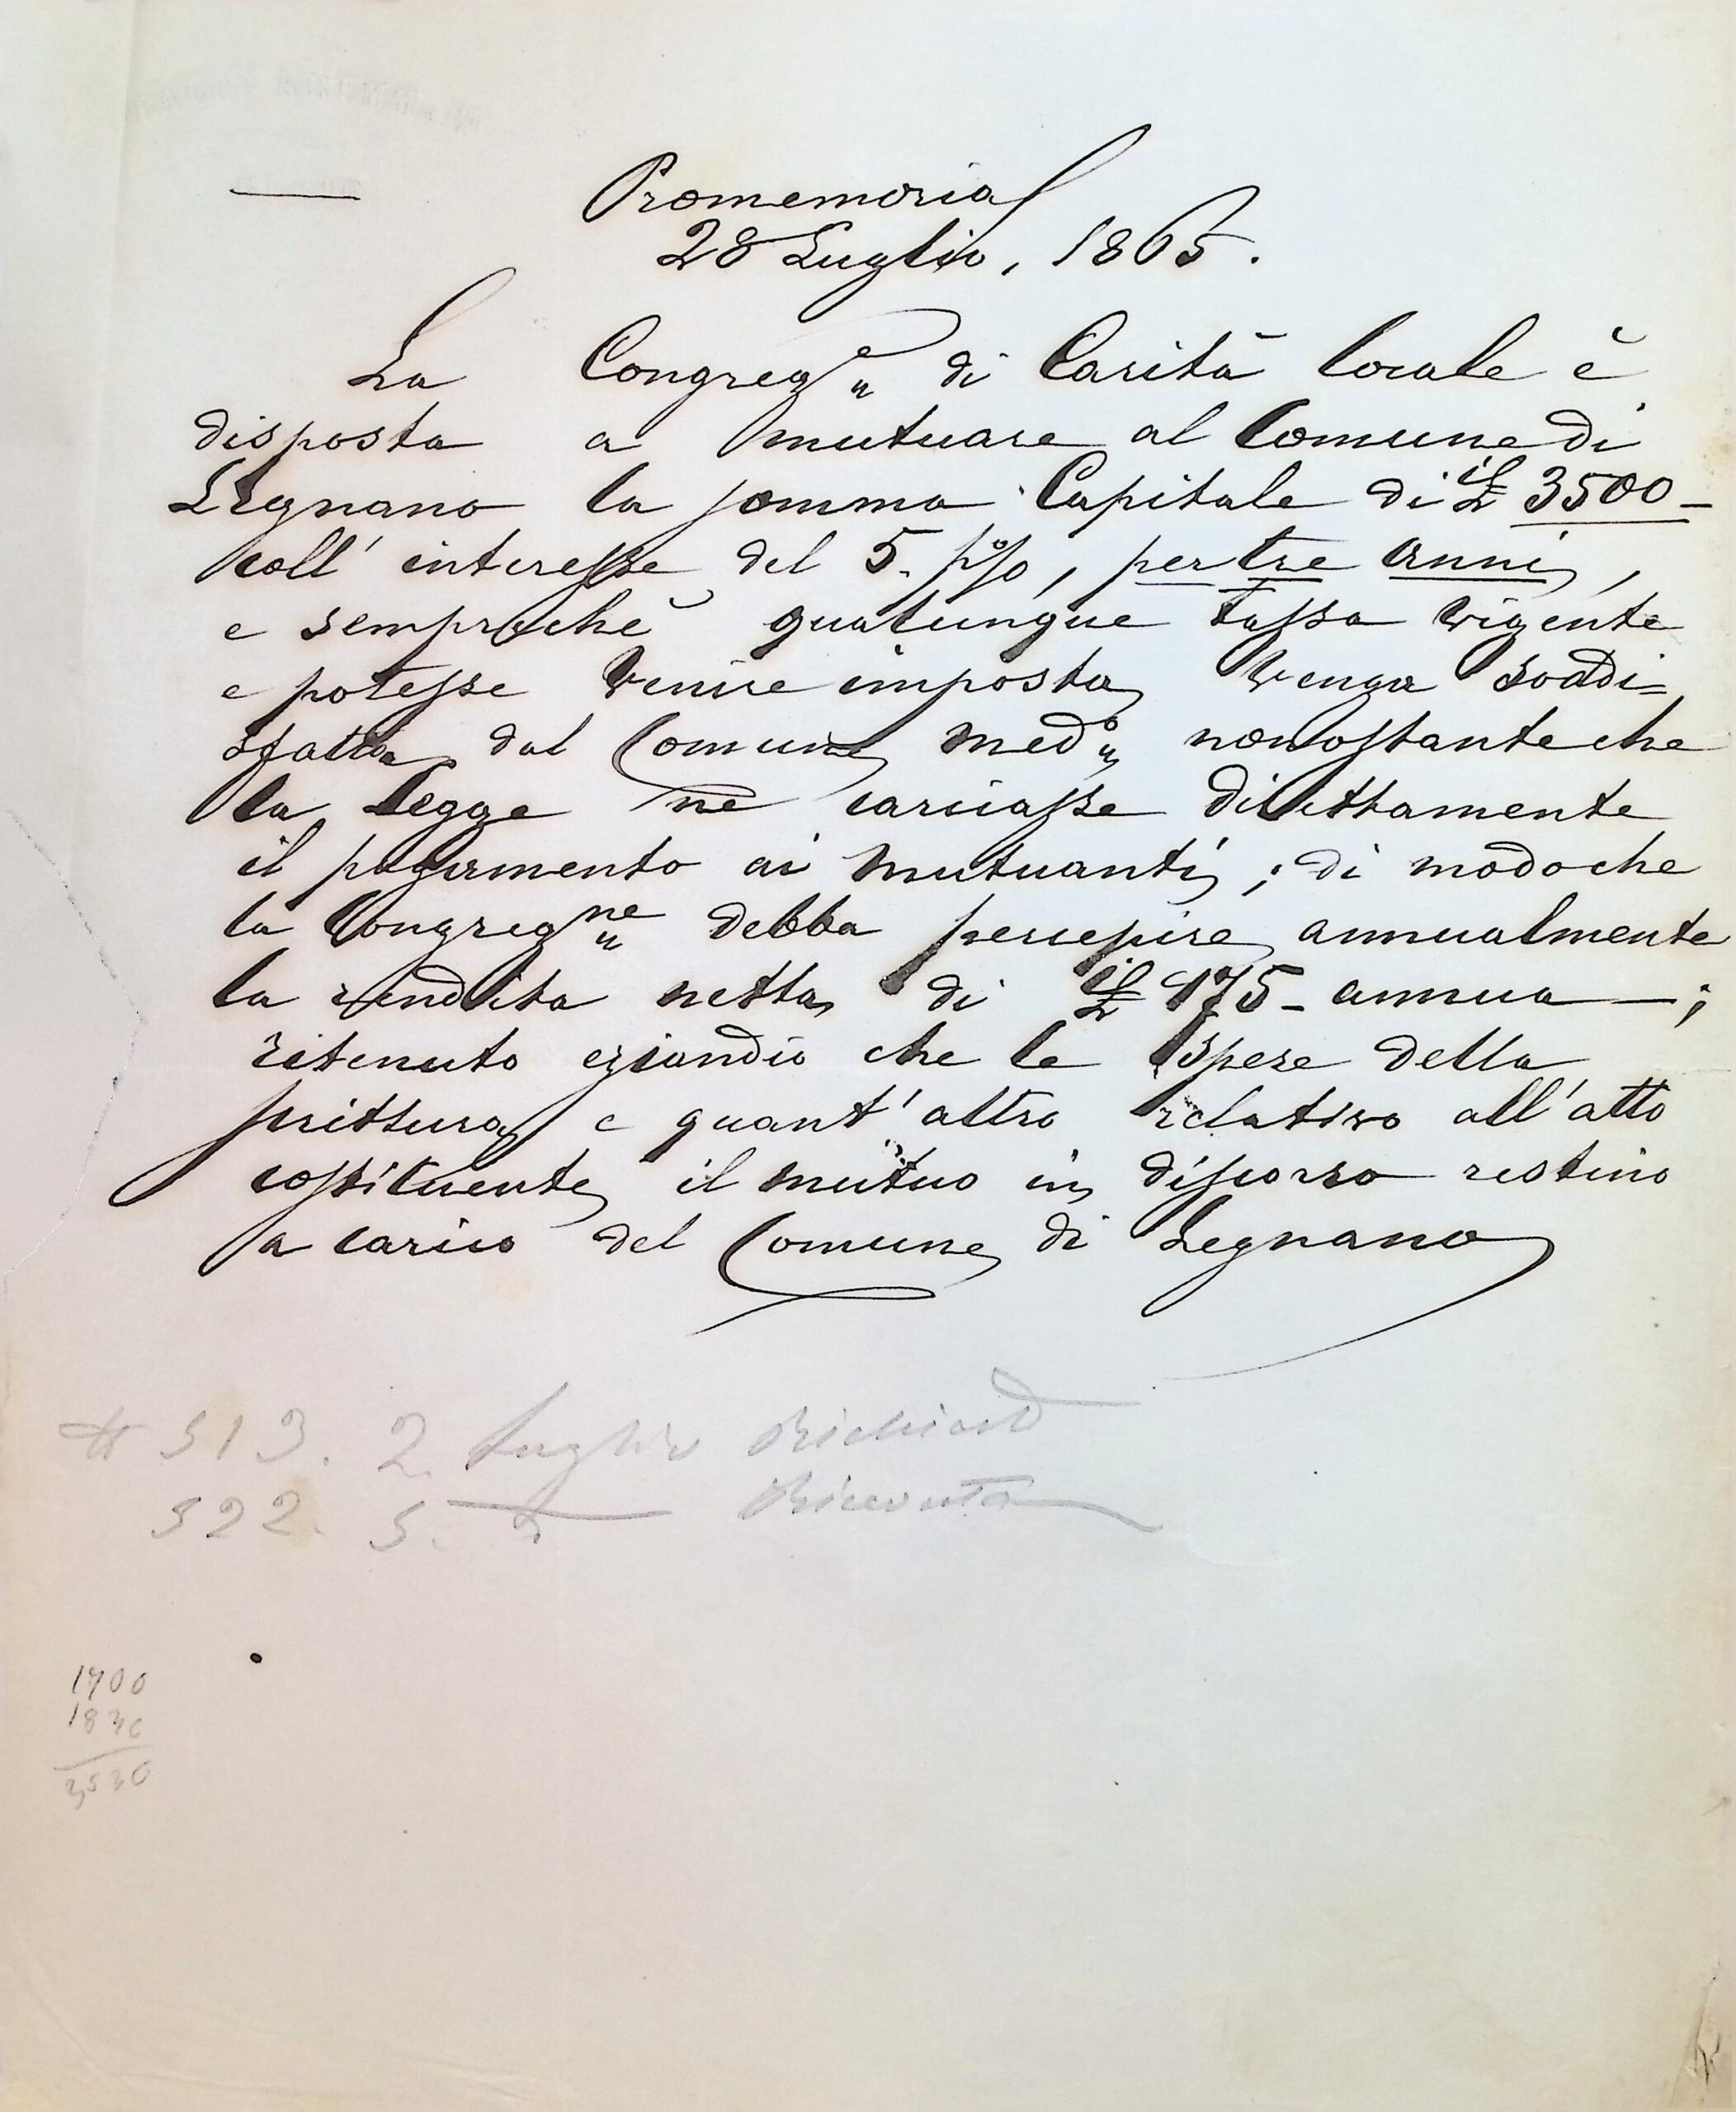 Promemoria
28 Luglio, 1865.
La Congreg.e di Carità locale è
disposta a mutuare al Comune di
Legnano la somma Capitale di i£ 3500 -
coll' interesse del 5. p%, per tre anni,
e semprechè qualunque tassa vigente
e potesse venire imposta venga soddi=
sfatta dal Comune med.o nonostante che
la Legge ne caricasse direttamente
il pagamento ai mutuanti; di modo che
la Congreg.ne debba percepire annualmente
la rendita netta di i£ 175 - annua —;
ritenuto eziandio che le spese della
scrittura e quant' altro relativo all' atto
costituente il mutuo in discorso restino
a carico del Comune di Legnano
513. 2. Luglio
522. 5. Ricevuta
1700
1830
3530